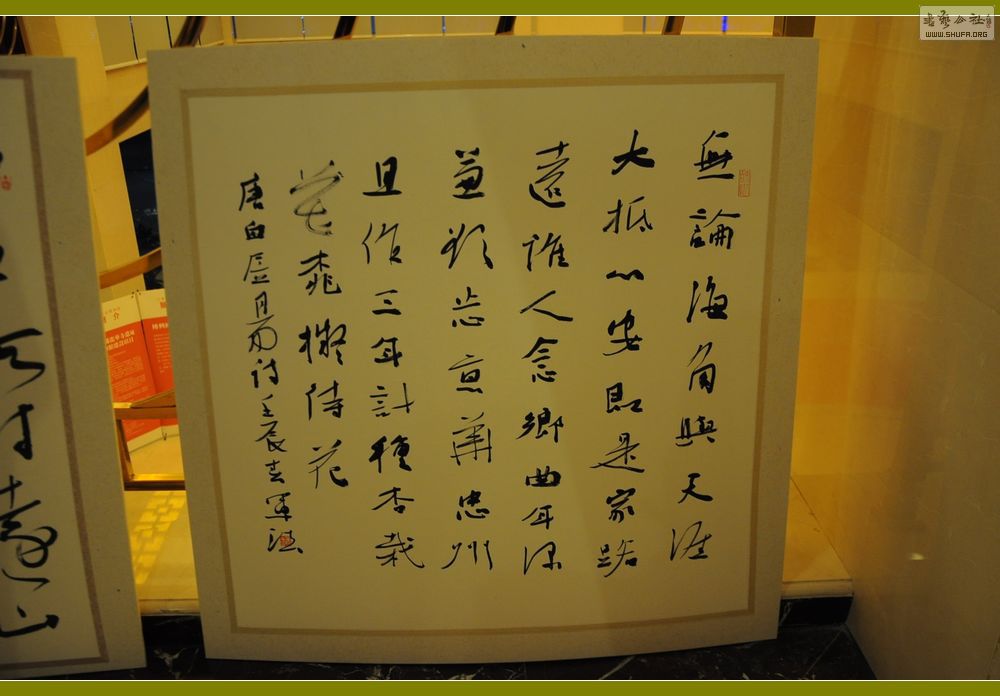 無論海角與天涯
大抵心安即是家路
遠誰人念鄉曲年深
兼欲忘京華忠州
且作三年計種杏栽
桃擬待花
唐白居易詩壬辰春軍
書藝公社
WWW.SHUFA.ORG